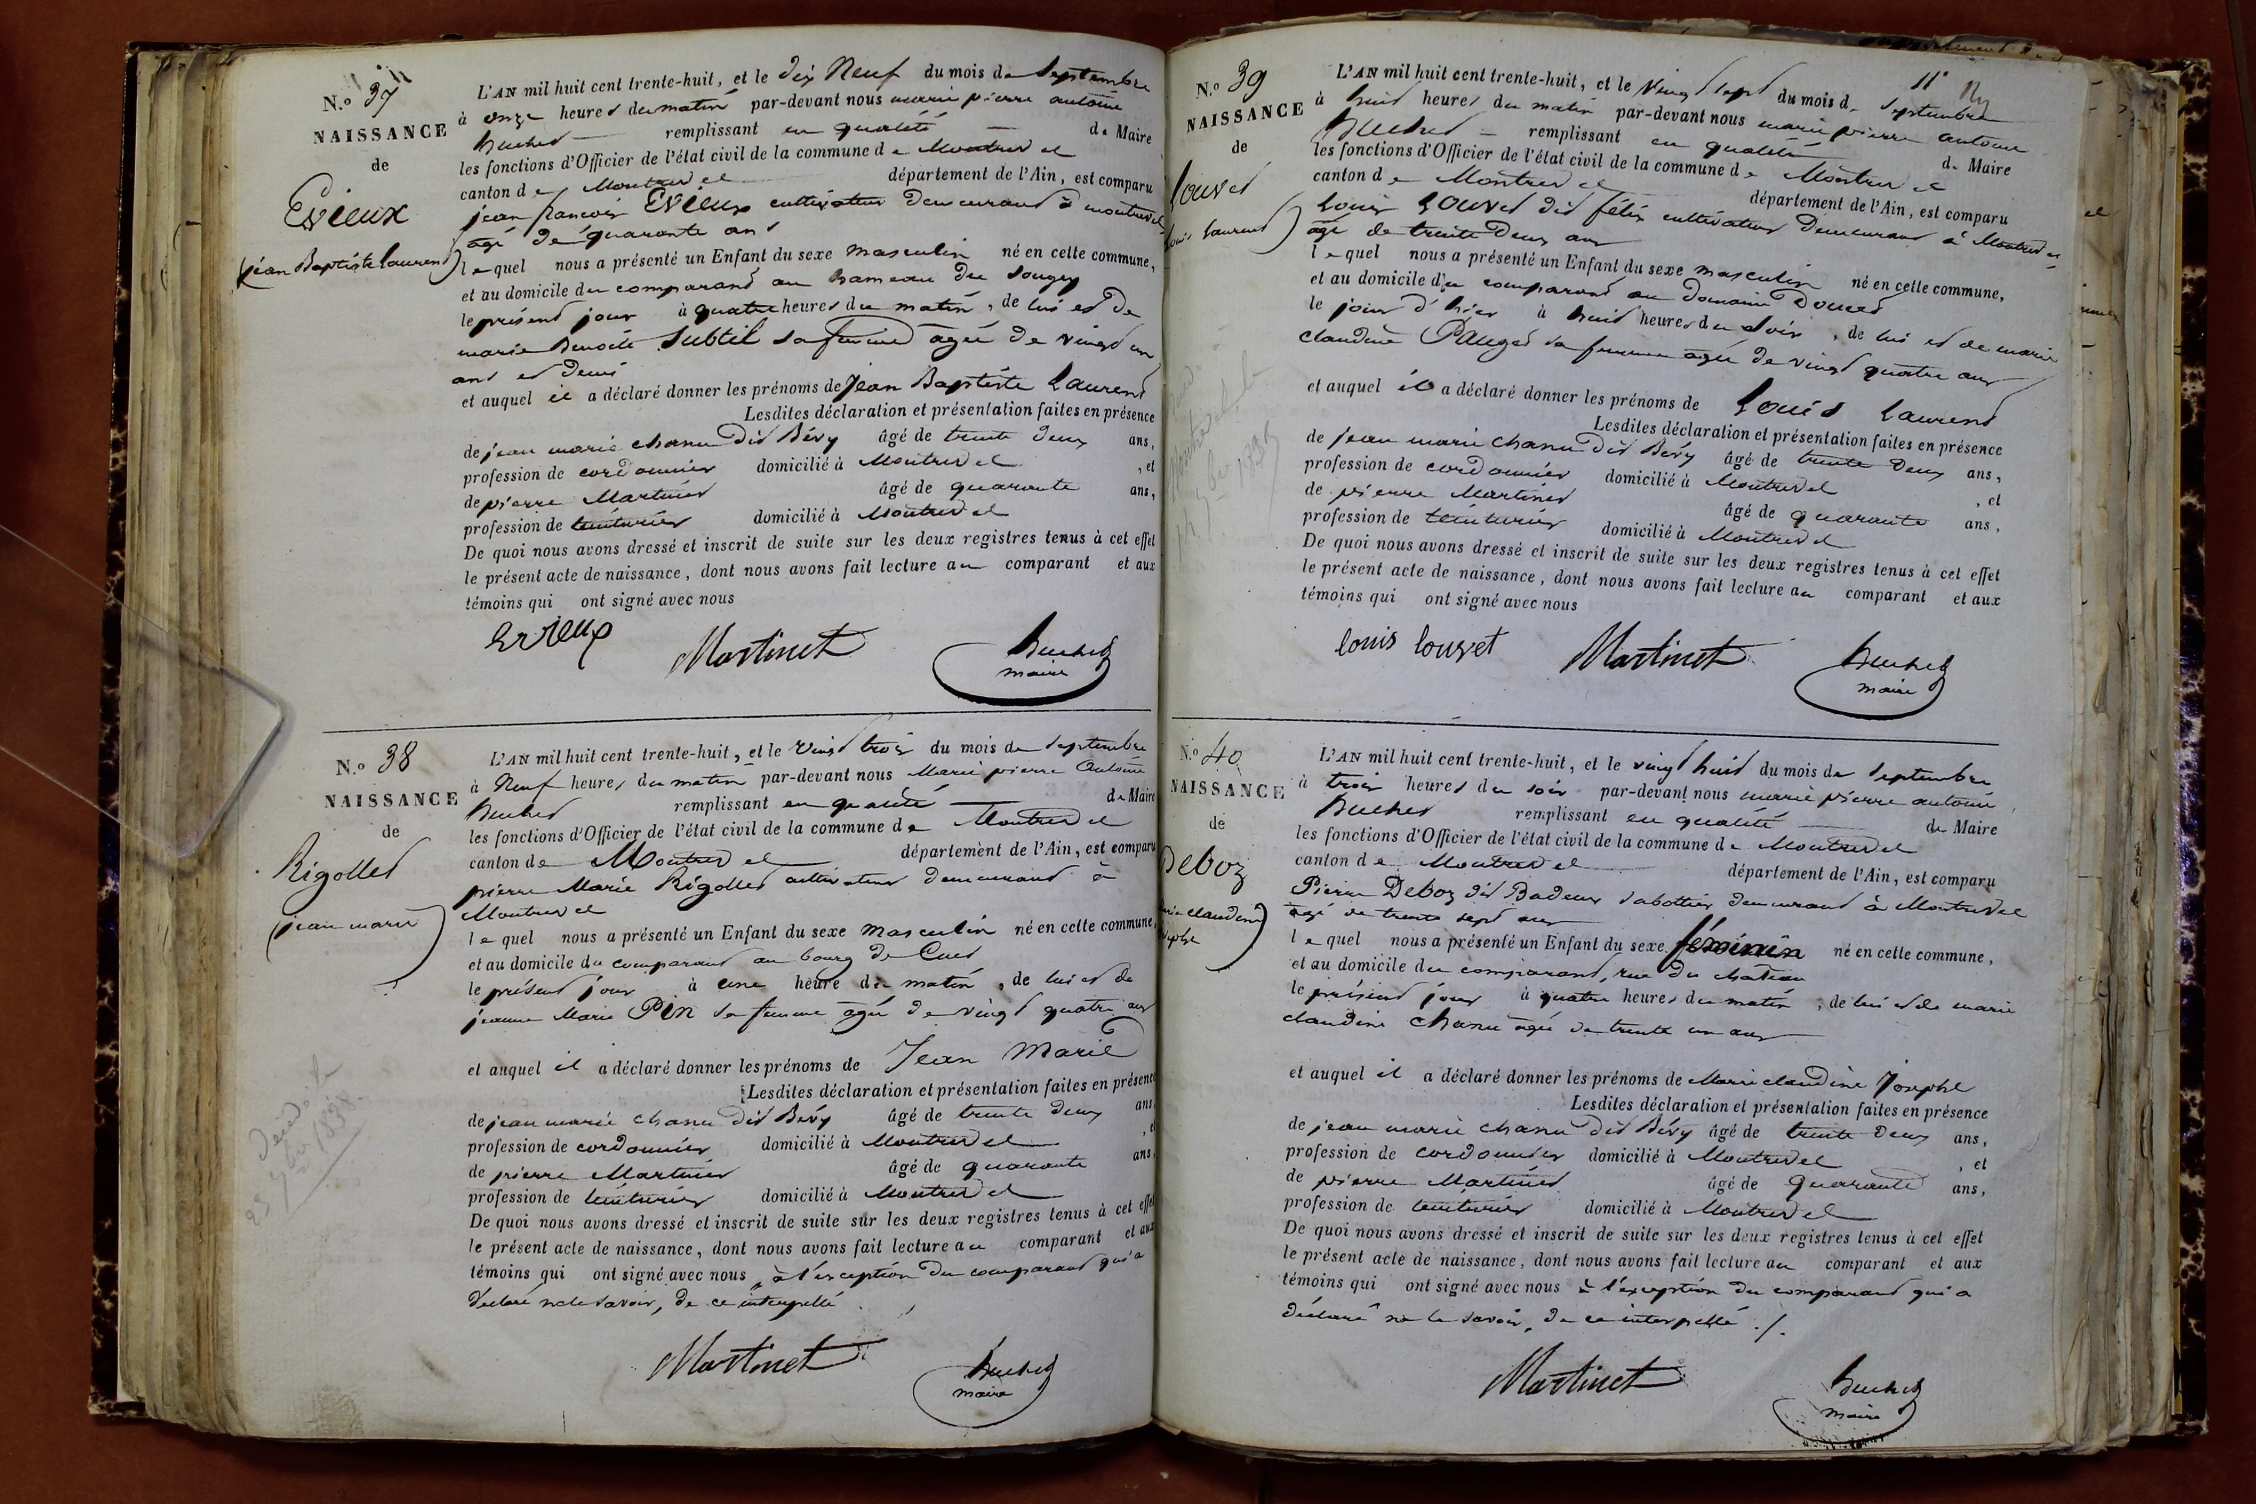 N.º 37
NAISSANCE
de
Evieux
(jean Baptiste Laurent)
L'AN mil huit cent trente-huit, et le dix Neuf du mois de Septembre
à onze heures du matin par-devant nous marie pierre antoine
huchet remplissant en qualité de Maire
les fonctions d'Officier de l'état civil de la commune de Montrevel
canton de Montrevel département de l'Ain, est comparu
jean francois Evieux cultivateur demeurant à montrevel
agé de quarante ans
lequel nous a présenté un Enfant du sexe masculin né en cette commune,
et au domicile du comparant au hameau du sougey
le présent jour à quatre heures du matin, de lui et de
marie Benoite Subtil sa femme agée de vingt un
ans et demi
et auquel il a déclaré donner les prénoms de Jean Baptiste Laurent
Lesdites déclaration et présentation faites en présence
de jean marie chanu dit Bévy âgé de trente deux ans,
profession de cordonnier domicilié à Montrevel, et
de pierre Martinet âgé de quarante ans,
profession de teinturier domicilié à Montrevel
De quoi nous avons dressé et inscrit de suite sur les deux registres tenus à cet effet
le présent acte de naissance, dont nous avons fait lecture au comparant et aux
témoins qui ont signé avec nous
Evieux Martinet huchet
maire
N.º 38
NAISSANCE
de
Rigollet
(jean marie)
L'AN mil huit cent trente-huit, et le vingt trois du mois de Septembre
à Neuf heures du matin par-devant nous Marie pierre Antoine
huchet remplissant en qualité de Maire
les fonctions d'Officier de l'état civil de la commune de Montrevel
canton de Montrevel département de l'Ain, est comparu
pierre Marie Rigollet cultivateur demeurant à
Montrevel
lequel nous a présenté un Enfant du sexe Masculin né en cette commune
et au domicile du comparant au bourg de Cuet
le présent jour à une heure du matin, de lui et de
jeanne Marie Pin sa femme agée de vingt quatre ans
et auquel il a déclaré donner les prénoms de Jean Marie
Lesdites déclaration et présentation faites en présence
de jean marie chanu dit Bévy âgé de trente deux ans
profession de cordonnier domicilié à Montrevel, et
de pierre Martinet âgé de quarante ans,
profession de teinturier domicilié à Montrevel
De quoi nous avons dressé et inscrit de suite sur les deux registres tenus à cet effet
le présent acte de naissance, dont nous avons fait lecture au comparant et aux
témoins qui ont signé avec nous, à l'exception du comparant qui a
déclaré ne le savoir, de ce interpellé
Décédé le
25 7bre 1838
Martinet huchet
maire
N.º 39
NAISSANCE
de
Louvet
Louis Laurent)
L'AN mil huit cent trente-huit, et le vingt sept du mois de Septembre
à huit heures du matin par-devant nous marie pierre antoine
huchet remplissant en qualité de Maire
les fonctions d'Officier de l'état civil de la commune de Montrevel
canton de Montrevel département de l'Ain, est comparu
Louis Louvet dit félix cultivateur demeurant à Montrevel
agé de trente deux ans
lequel nous a présenté un Enfant du sexe masculin né en cette commune,
et au domicile du comparant au domaine Doucet
le jour d'hier à huit heures du soir, de lui et de marie
claudine Pauget sa femme agée de vingt quatre ans
et auquel il a déclaré donner les prénoms de Louis Laurent
Lesdites déclaration et présentation faites en présence
de jean marie chanu dit Bévy âgé de trente deux ans,
profession de cordonnier domicilié à Montrevel, et
de pierre Martinet âgé de quarante ans,
profession de teinturier domicilié à Montrevel
De quoi nous avons dressé et inscrit de suite sur les deux registres tenus à cet effet
le présent acte de naissance, dont nous avons fait lecture au comparant et aux
témoins qui ont signé avec nous
louis louvet Martinet huchet
maire
N.º 40
NAISSANCE
de
Deboz
claudine)
josephe
L'AN mil huit cent trente-huit, et le vingt huit du mois de Septembre
à trois heures du soir par-devant nous marie pierre antoine
huchet remplissant en qualité de Maire
les fonctions d'Officier de l'état civil de la commune de Montrevel
canton de Montrevel département de l'Ain, est comparu
Pierre Deboz dit Badeux sabottier demeurant à Montrevel
agé de trente sept ans
lequel nous a présenté un Enfant du sexe féminin né en cette commune,
et au domicile du comparant, rue du chateau
le présent jour à quatre heures du matin, de lui et de marie
claudine chanu agée de trente un ans
et auquel il a déclaré donner les prénoms de Marie claudine Josephe
Lesdites déclaration et présentation faites en présence
de jean marie chanu dit Bévy âgé de trente deux ans,
profession de cordonnier domicilié à Montrevel, et
de pierre Martinet âgé de quarante ans,
profession de teinturier domicilié à Montrevel
De quoi nous avons dressé et inscrit de suite sur les deux registres tenus à cet effet
le présent acte de naissance, dont nous avons fait lecture au comparant et aux
témoins qui ont signé avec nous à l'exception du comparant qui a
déclaré ne le savoir, de ce interpellé ./.
Martinet huchet
maire